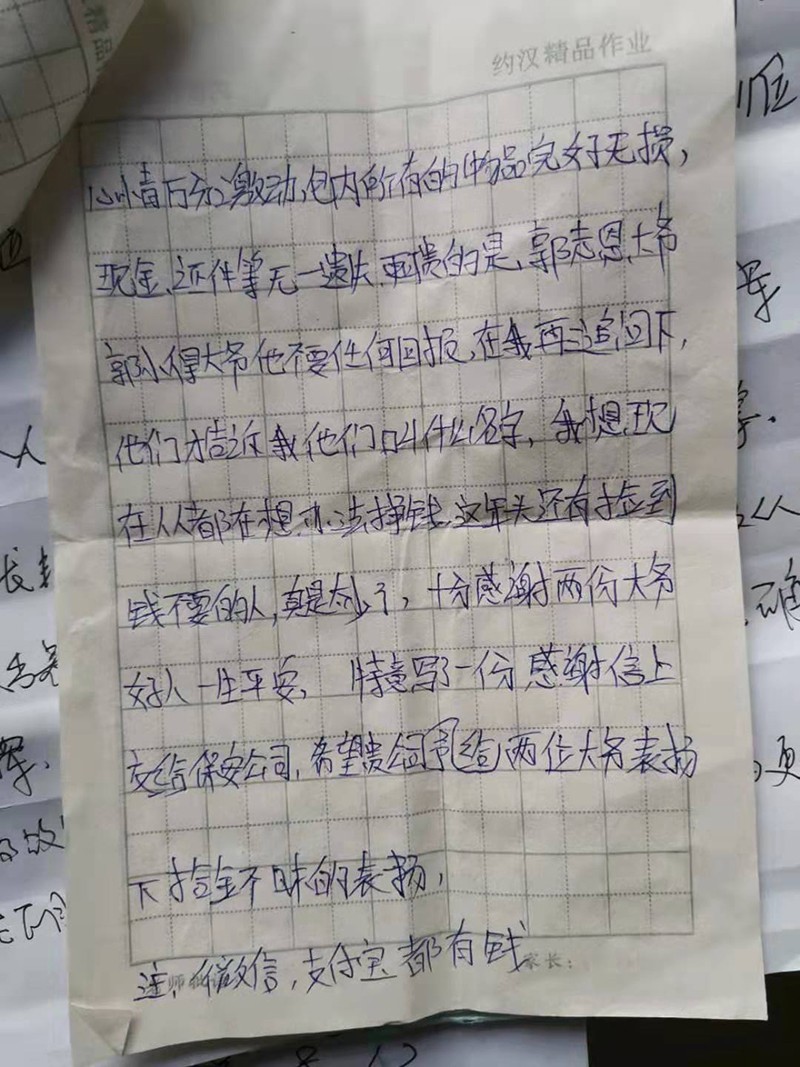 约汉精品作业
心情万分激动,包内所有的物品完好无损,
现金、证件等无一遗失,更贵的是,郭志恩大爷
郭小得大爷他不要任何回报,在我再三追问下,
他们才告诉我他们叫什么名字,我想现
在人人都在想办法挣钱,这年头还有捡到
钱不要的人,真是太少了,十分感谢两份大爷
好人一生平安, 特意写了一份感谢信上
交给保安公司,希望贵公司给两位大爷表扬
下拾金不昧的表扬,
注,微信,支付宝都有钱
家长: